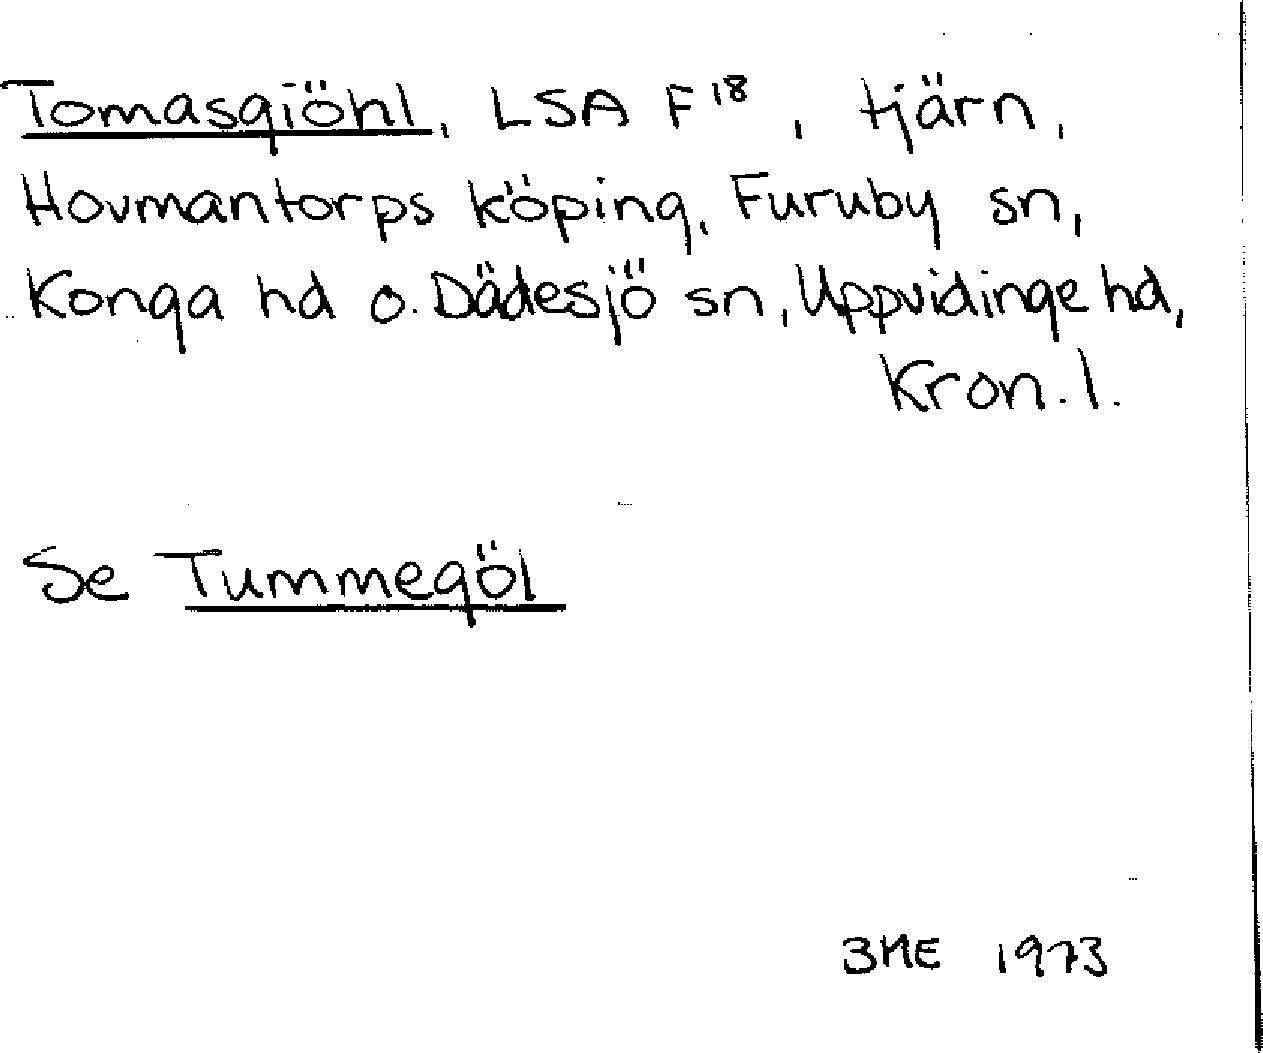 Tomasgiöhl, LSA F18, tjärn,
Hovmantorps köping, Furuby sn,
Konga hd o. Dädesjö sn, Uppvidinge hd,
Kron. l.
Se Tummegöl
3ME 1973